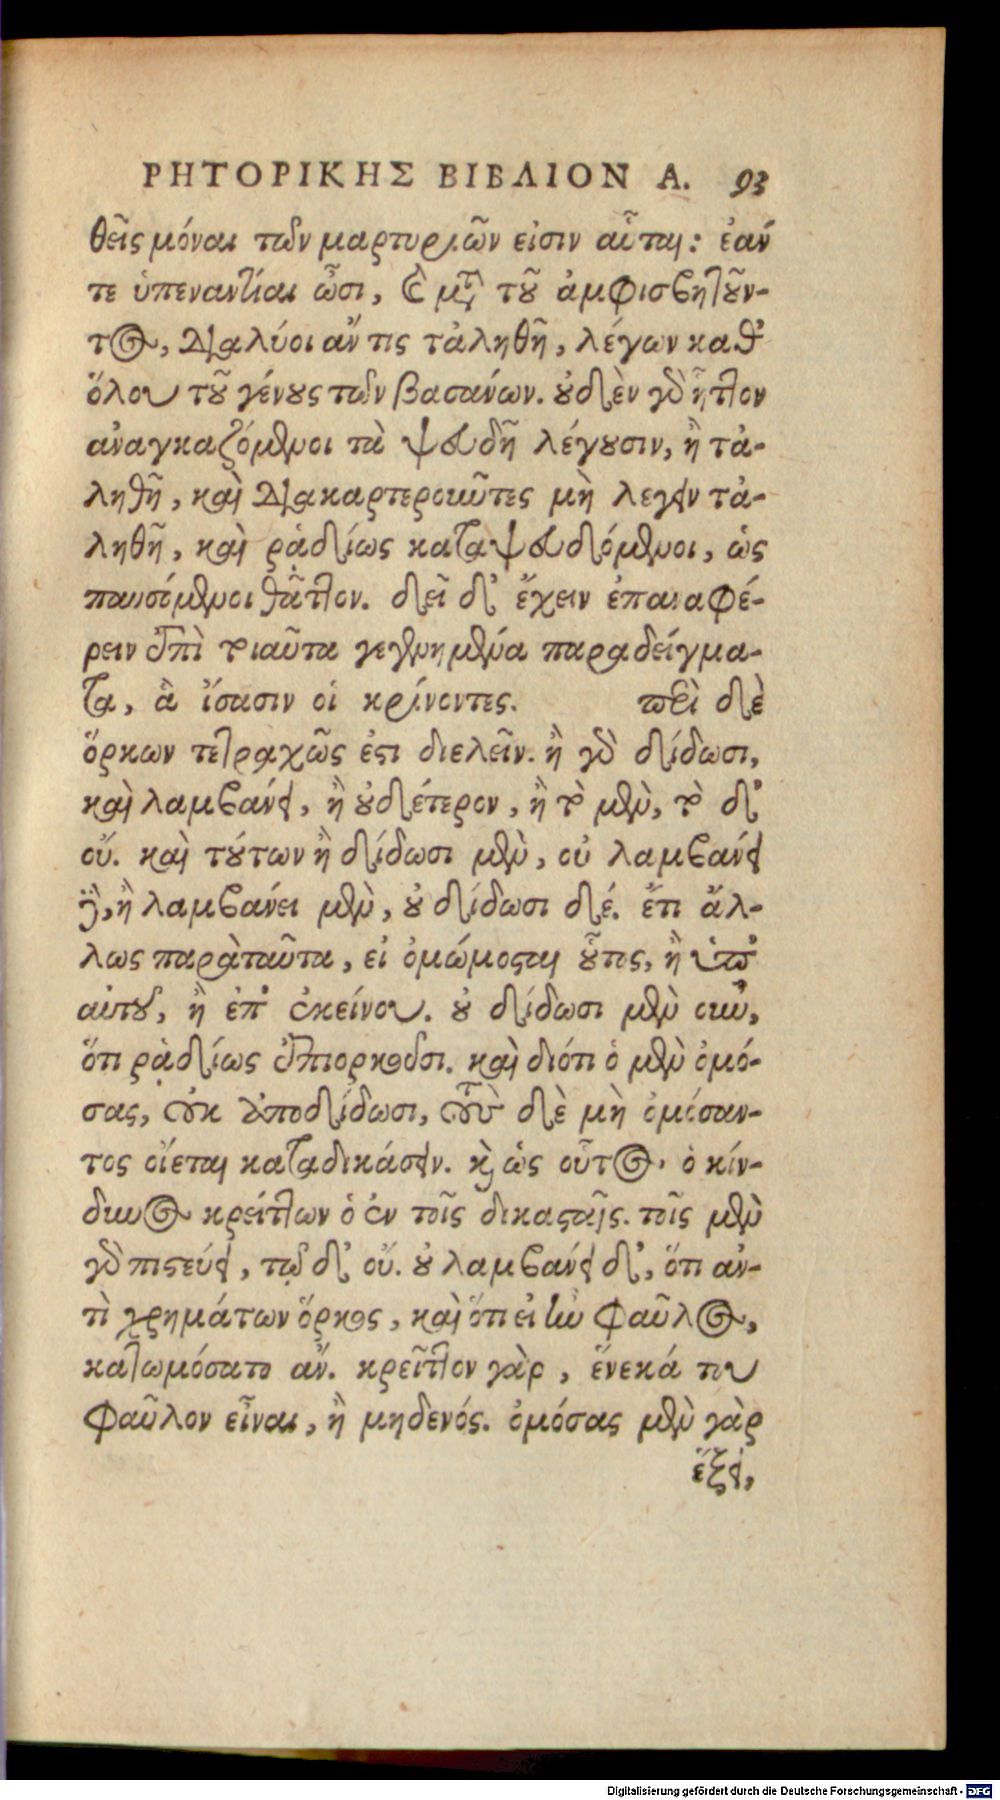 ΡΗΤΟΡΙΚΗΣ ΒΙΒΛΙΟΝ Α. 93
θεῖς μόναι τῶν μαρτυριῶν εἰσιν αὗται: ἐάν
τε ὑπεναντίαι ὦσι, καὶ μετὰ τοῦ ἀμφισβητοῦν-
τος, διαλύοι ἄν τις τἀληθῆ, λέγων καθ'
ὅλου τοῦ γένους τῶν βασάνων. οὐδὲν γὰρ ἧττον
ἀναγκαζόμενοι τὰ ψευδῆ λέγουσιν, ἢ τἀ-
ληθῆ, καὶ διακαρτεροῦντες μὴ λεγειν τἀ-
ληθῆ, καὶ ῥᾳδίως καταψευδόμενοι, ὡς
παυσόμενοι θᾶττον. δεῖ δ' ἔχειν ἐπαναφέ-
ρειν ἐπὶ τοιαῦτα γεγενημένα παραδείγμα-
τα, ἃ ἴσασιν οἱ κρίνοντες. περὶ δὲ
ὅρκων τετραχῶς ἐστι διελεῖν. ἢ γὰρ δίδωσι,
καὶ λαμβάνει, ἢ οὐδέτερον, ἢ τὸ μὲν, τὸ δ'
οὔ. καὶ τούτων ἢ δίδωσι μὲν, οὐ λαμβάνει
δὲ, ἢ λαμβάνει μὲν, οὐ δίδωσι δέ. ἔτι ἄλ-
λως παρὰ ταῦτα, εἰ ὀμώμοσται οὗτος, ἢ ὑπ'
αὐτοῦ, ἢ ἐπ' ἐκείνου. οὐ δίδωσι μὲν οὖν,
ὅτι ῥᾳδίως ἐπιορκοῦσι. καὶ διότι ὁ μὲν ὀμό-
σας, οὐκ ἀποδίδωσι, τοῦ δὲ μὴ ὀμόσαν-
τος οἴεται καταδικάσειν. καὶ ὡς οὗτος, ὁ κίν-
δυνος κρείττων ὁ ἐν τοῖς δικασταῖς. τοῖς μὲν
γὰρ πιστεύει, τῷ δ' οὔ. οὐ λαμβάνει δ', ὅτι ἀν-
τὶ χρημάτων ὅρκος, καὶ ὅτι εἰ ἦν φαῦλος,
κατωμόσατο ἄν. κρεῖττον γὰρ, ἕνεκά του
φαῦλον εἶναι, ἢ μηδενός. ὀμόσας μὲν γὰρ
ἕξει,
Digitalisierung gefördert durch die Deutsche Forschungsgemeinschaft - DFG